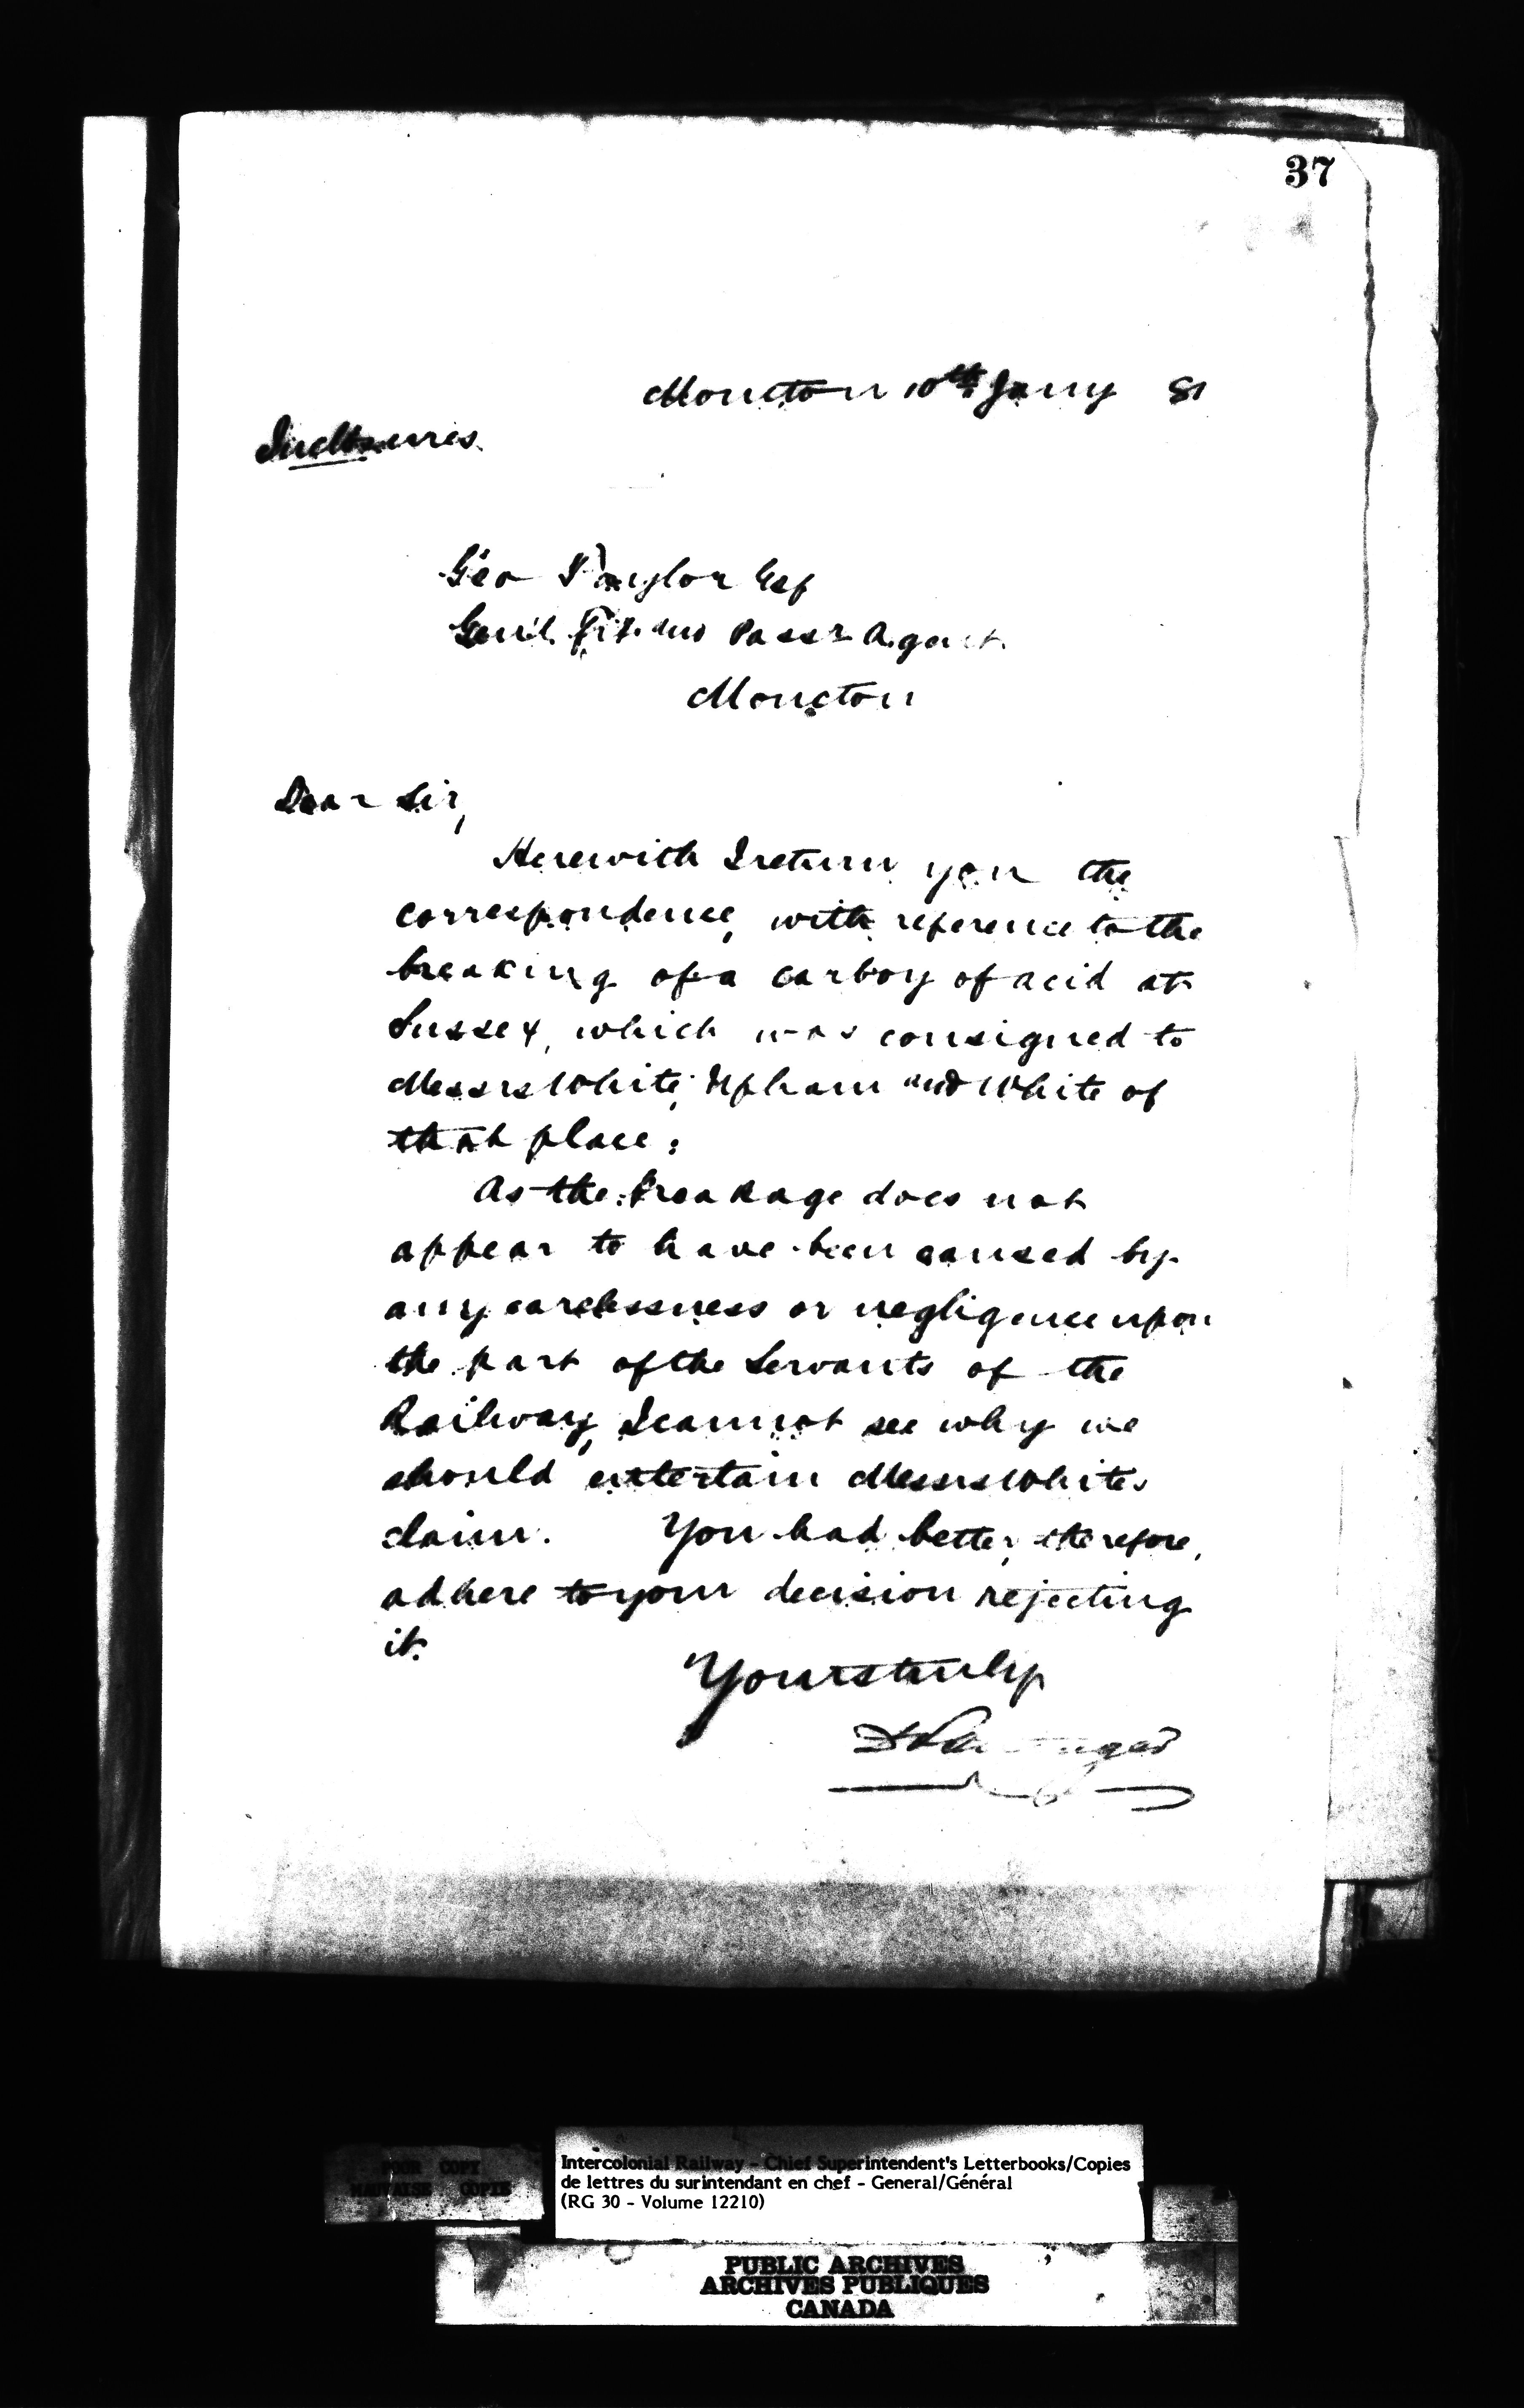 37
Moncton 10th Jany 81
Inclosures.
Geo Taylor Esq
Gen'l Frt. and Passr Agent.
Moncton
Dear Sir,
Herewith I return you the
correspondence, with reference to the
breaking of a carboy of acid at
Sussex, which was consigned to
Messrs White, Upham and White of
that place.
As the breakage does not
appear to have been caused by
any carelessness or negligence upon
the part of the Servants of the
Railway, I cannot see why we
should entertain Messrs Whites
claim. You had better, therefore,
adhere to your decision rejecting
it.
Yours truly
POOR COPY
MAUVAISE COPIE
Intercolonial Railway - Chief Superintendent's Letterbooks/Copies
de lettres du surintendant en chef - General/Général
(RG 30 - Volume 12210)
PUBLIC ARCHIVES
ARCHIVES PUBLIQUES
CANADA